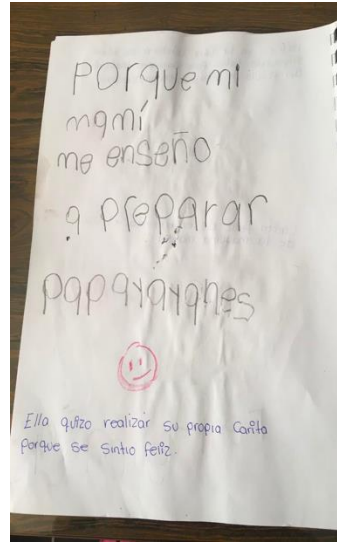 Porque mi
mamí
me enseño
a preparar
papayayanes
Ella quizo realizar su propia Carita
porque se sintio feliz.